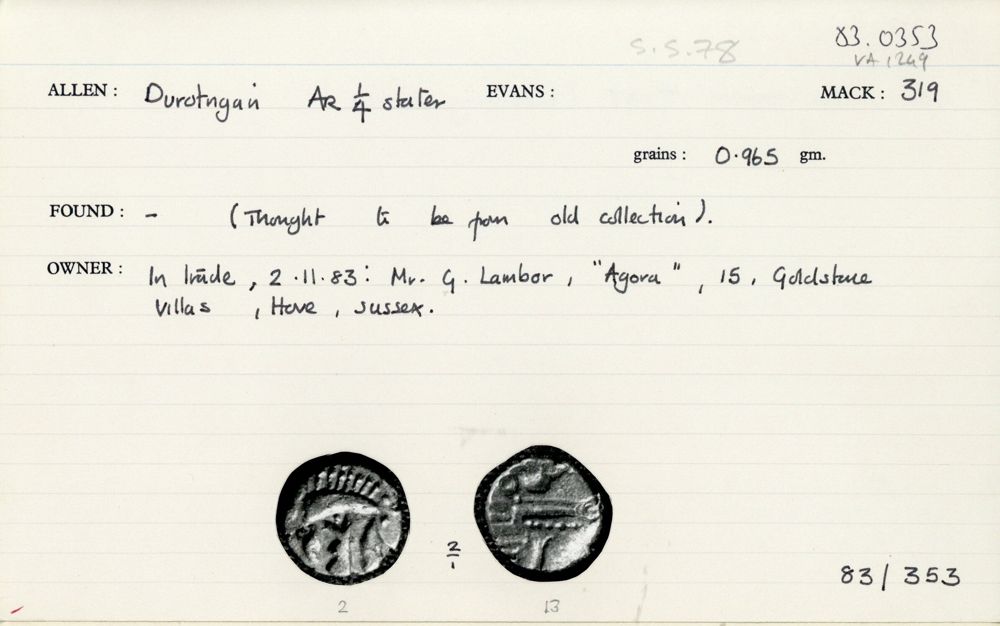 S.S.78
83.0353
VA 1249
ALLEN : Durotrigan AR 1/4 stater EVANS : MACK : 319
grains : 0.965 gm.
FOUND : - (Thought to be from old collection).
OWNER : In trade, 2.11.83: Mr. G. Lambor, "Agora", 15, Goldstone
Villas, Hove, Sussex.
2/1
83/353
2 13